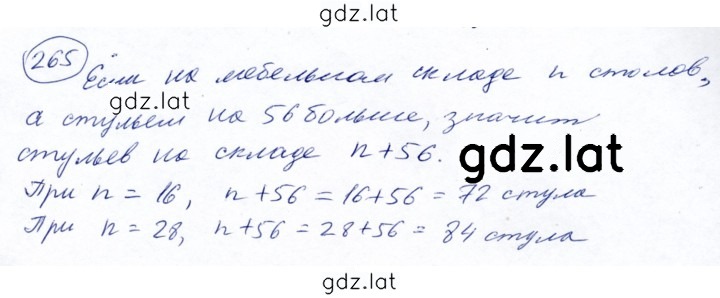 gdz.lat
265 Если на мебельном складе n столов,
gdz.lat
а стульем на 56 больше, значит
gdz.lat
стульев на складе n+56.
При n = 16, n+56 = 16+56 = 72 стула
При n = 28, n+56 = 28+56 = 84 стула
gdz.lat